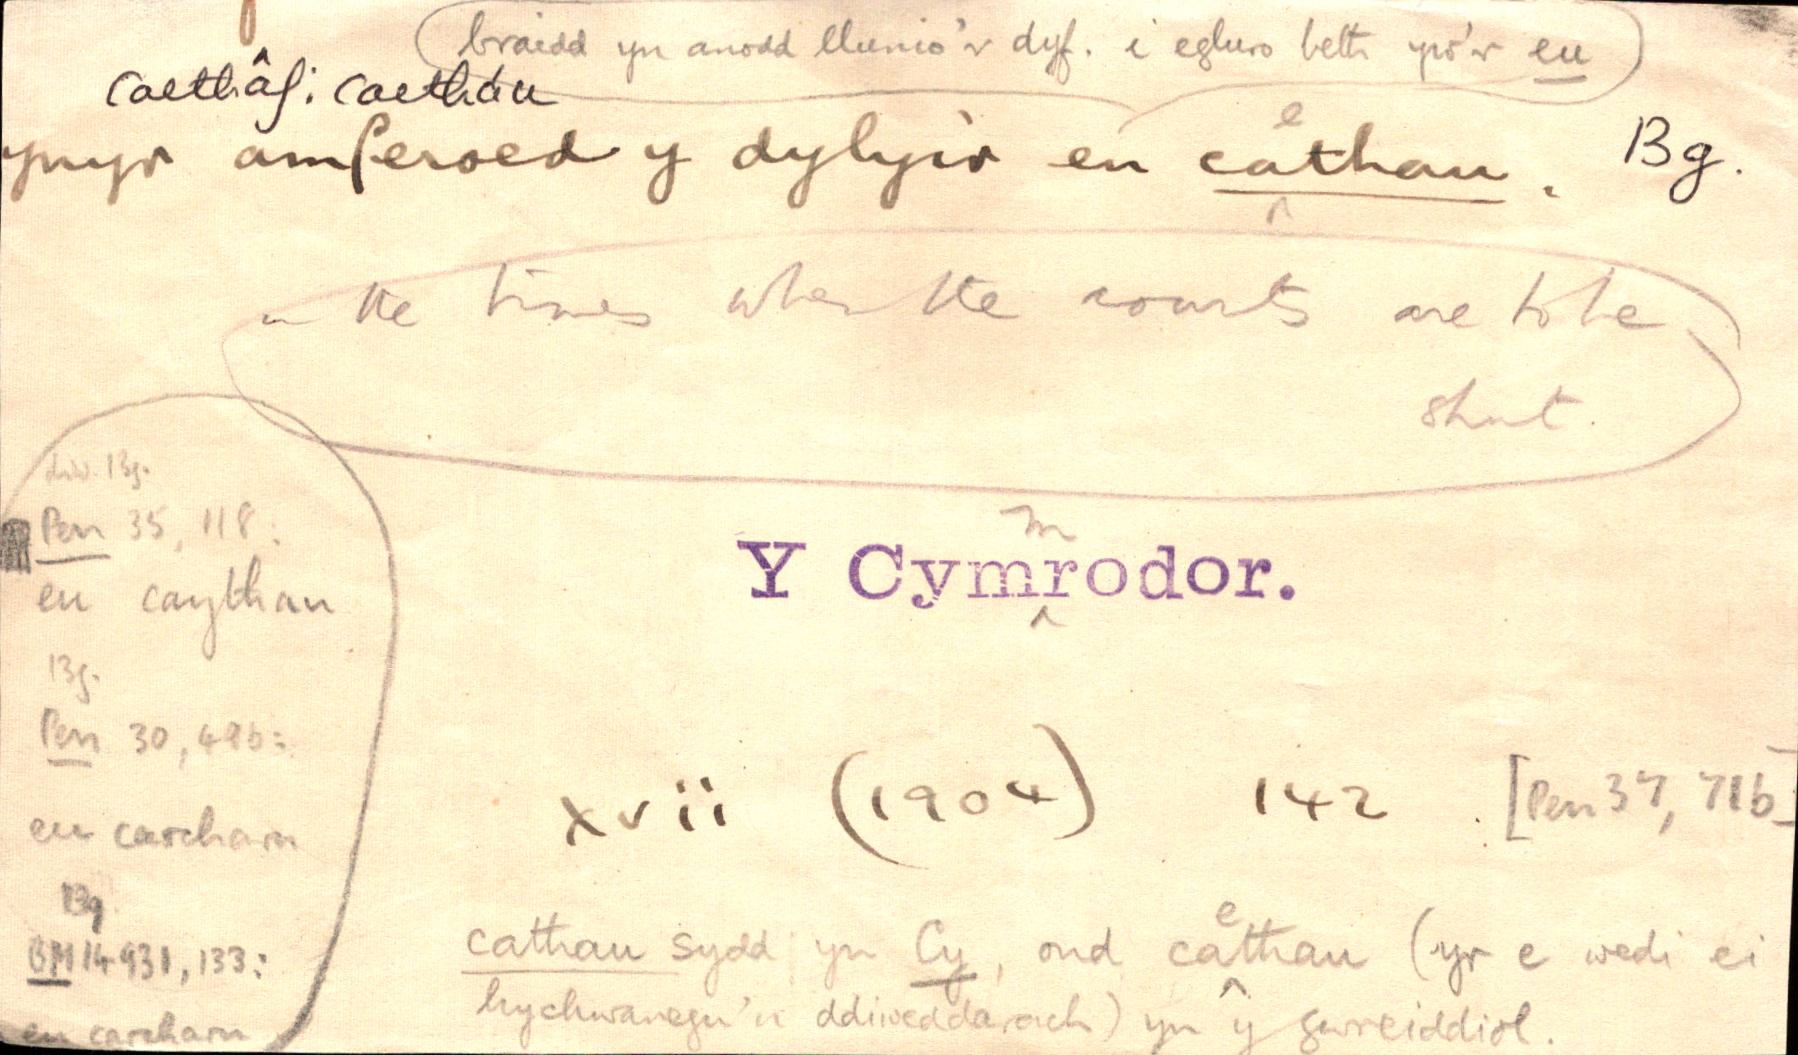 braidd yn anodd llunio'r dyf. i egluro beth yw'r eu
caethâf: caetháu
ynyr amſeroed y dylyir eu caethau. Bg.
in the times when the courts are to be
shut.
Bg.
Pen 35, 118:
eu caythau
Bg.
Pen 30, 49b:
eu carcharu
Bg
BM 14931, 133:
eu carcharu
Y Cymmrodor.
xvii (1904) 142 [Pen 37, 71b]
cathau sydd yn Cy, ond caethau (yr e wedi ei
hychwanegu'n ddiweddarach) yn y gwreiddiol.